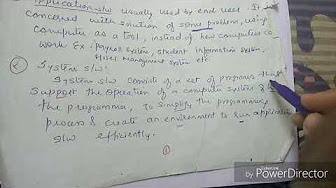 Application s/w usually used by end user. It is
concerned with solution of some problem, using
computer as a tool, instead of how computers co
work Ex: Payroll system, student Information system,
Hotel Management system etc.
② System s/w:
System s/w consist of a set of programs that
Support the operation of a computer system &
the programmer, to simplify the programming
process & create an environment to run application
s/w efficiently.
①
Made by
PowerDirector